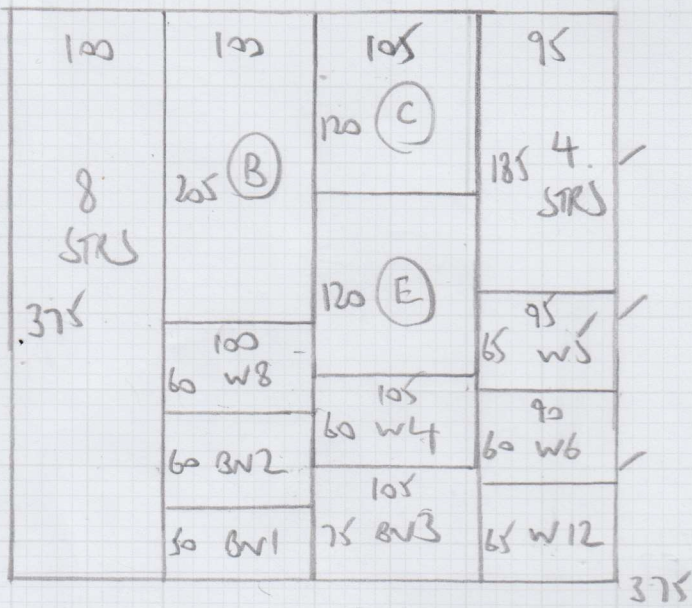 100
8
STRS
375
100
205 B
100
60 W8
60 BN2
50 BN1
105
120 C
120 E
105
60 W4
105
75 BN3
95
185 4
STRS
95
65 W5
90
60 W6
65 W12
375